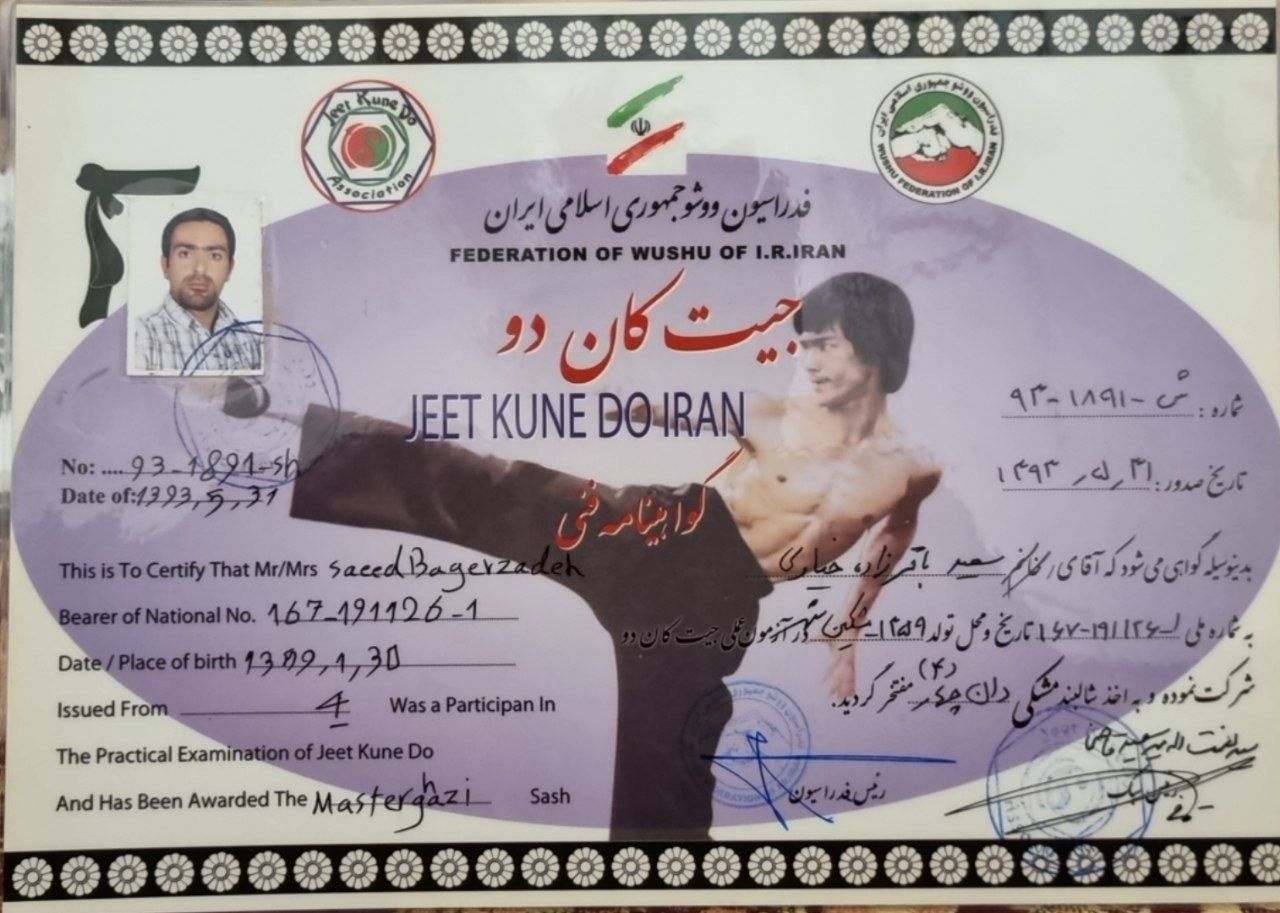 Jeet Kune Do
Association
فدراسیون ووشو جمهوری اسلامی ایران
WUSHU FEDERATION OF I.R.IRAN
فدراسیون ووشو جمهوری اسلامی ایران
FEDERATION OF WUSHU OF I.R.IRAN
جیت کان دو
JEET KUNE DO IRAN
گواهینامه فنی
شماره : ش - ۱۸۹۱ - ۹۳
تاریخ صدور : ۱۳۹۳٫۵٫۳۱
بدینوسیله گواهی می شود که آقای / خانم سعید باقرزاده خیاوی
به شماره ملی ۱-۱۹۱۱۲۶-۱۶۷ تاریخ و محل تولد ۱۳۵۹ مشکین شهر در آزمون عملی جیت کان دو
شرکت نموده و به اخذ شالبند مشکی دان چهار (۴) مفتخر گردید.
رئیس فدراسیون
رئیس سبک
No: .... 93-1891-sh
Date of: 1393,5,31
This is To Certify That Mr/Mrs saeed Bagerzadeh
Bearer of National No. 167-191126-1
Date / Place of birth 1389,1,30
Issued From 4 Was a Participan In
The Practical Examination of Jeet Kune Do
And Has Been Awarded The Masterghazi Sash